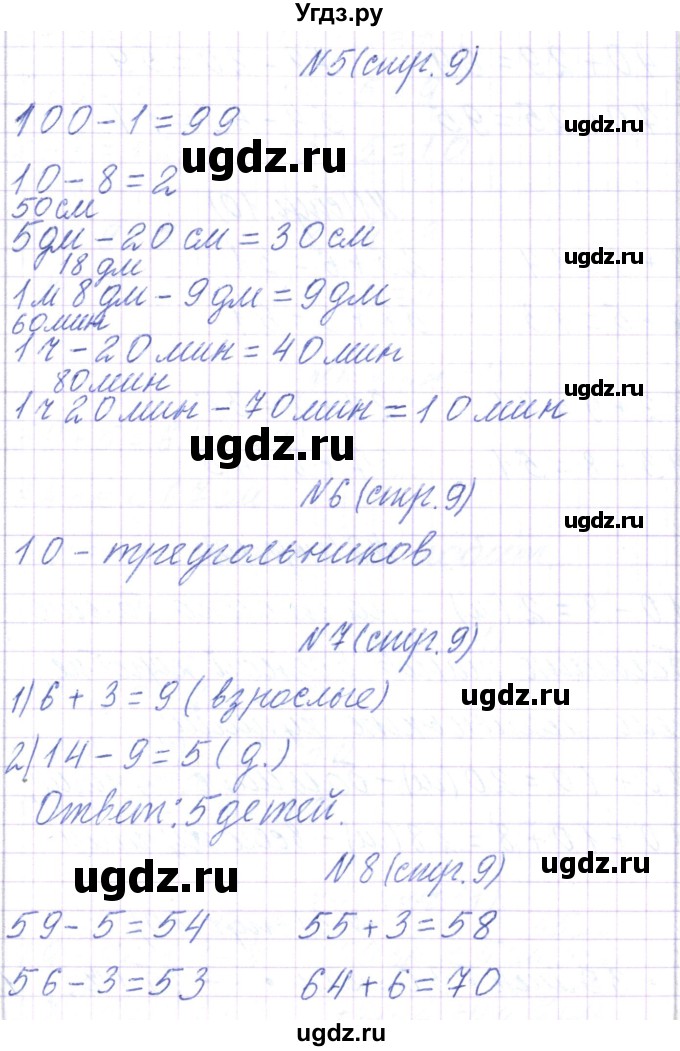 Угдз.ру
№5(стр. 9)
100 - 1 = 99
ugdz.ru
ugdz.ru
10 - 8 = 2
50 см
5 дм - 20 см = 30 см
ugdz.ru
18 дм
1 м 8 дм - 9 дм = 9 дм
60 мин
1 ч - 20 мин = 40 мин
80 мин
ugdz.ru
1 ч 20 мин - 70 мин = 10 мин
ugdz.ru
№6 (стр. 9)
ugdz.ru
10 - треугольников
№7(стр. 9)
1) 6 + 3 = 9 (взрослые)
ugdz.ru
2) 14 - 9 = 5 (д.)
Ответ: 5 детей.
№8(стр. 9)
ugdz.ru
ugdz.ru
59 - 5 = 54 55 + 3 = 58
56 - 3 = 53 64 + 6 = 70
ugdz.ru